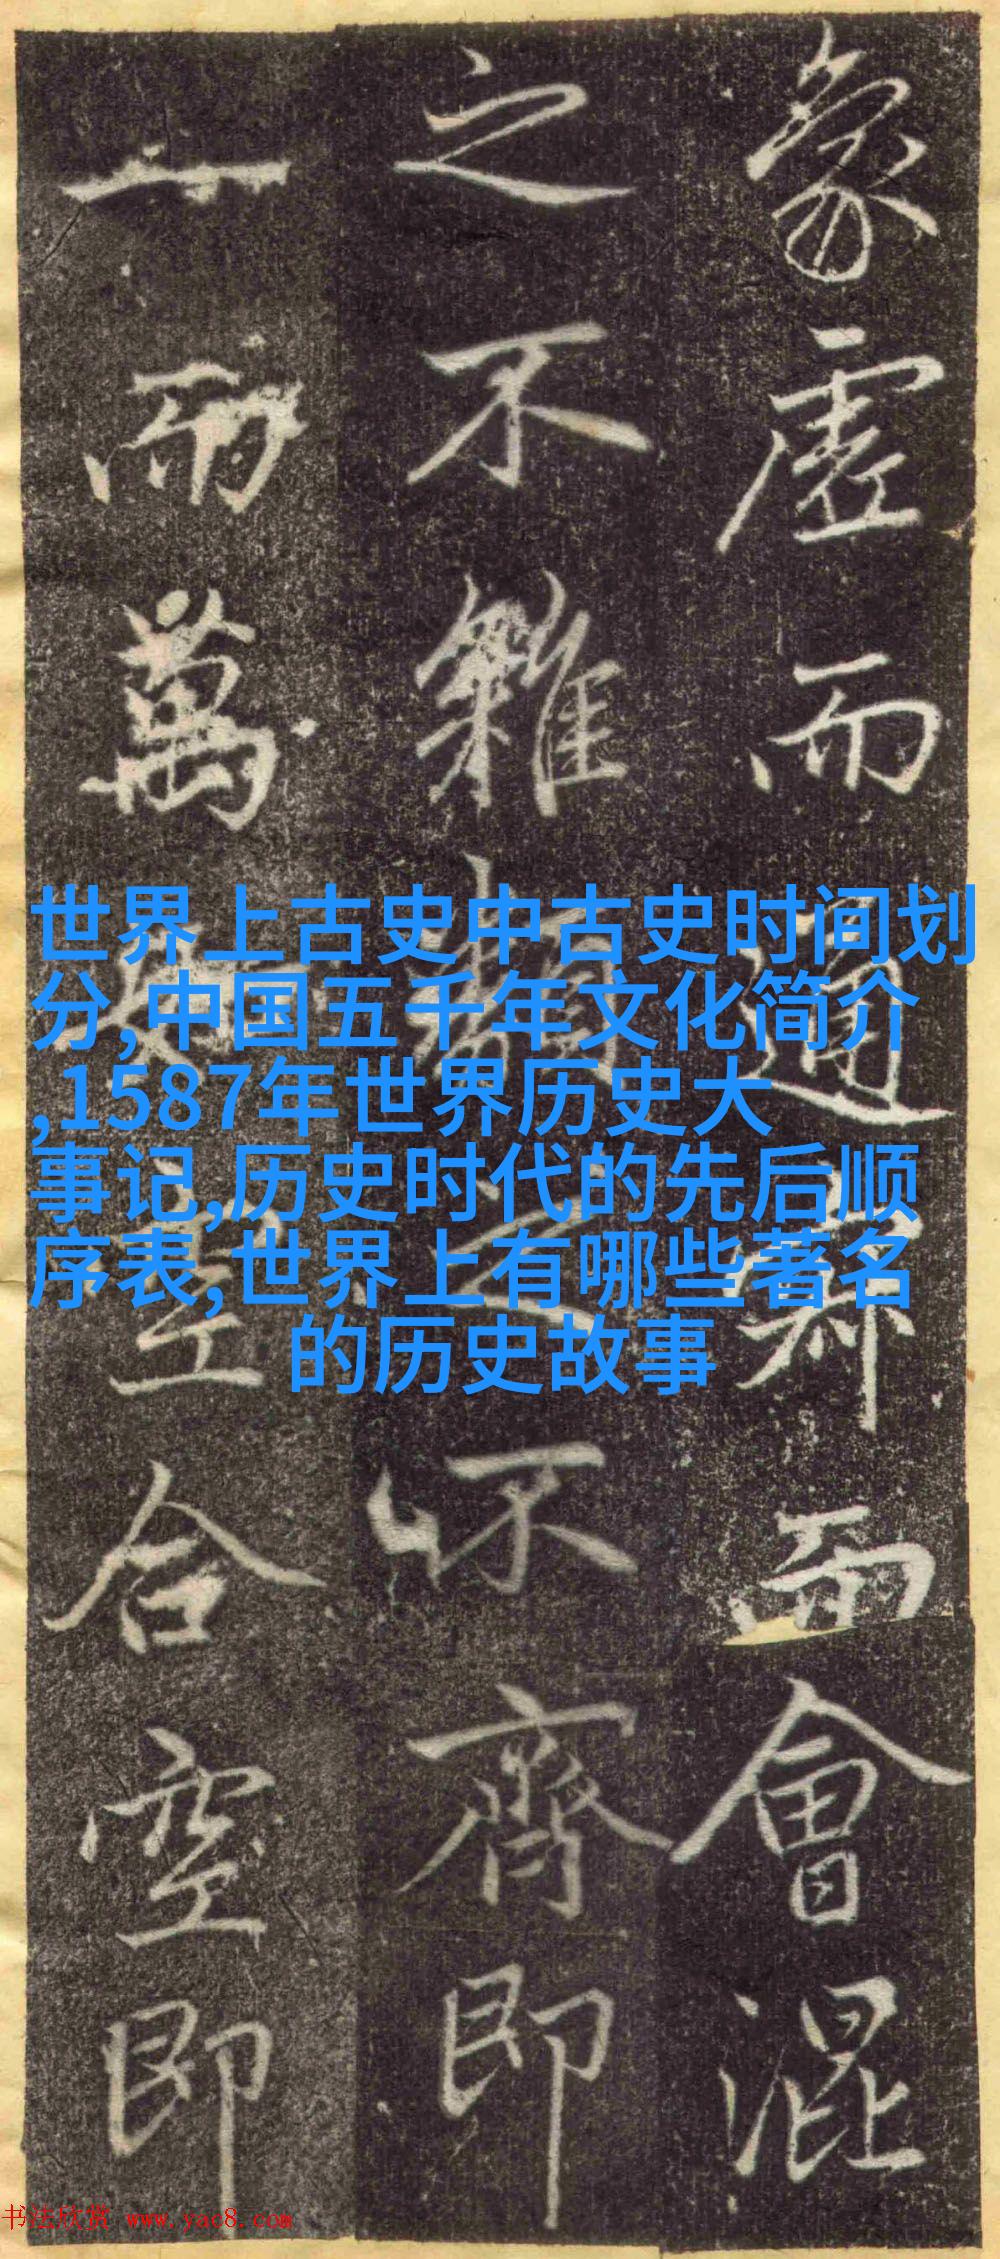 象虛而通鄰而會混
之不雜類之不齊即
一而萬空合空即
世界上古史中古史时间划
分,中国五千年文化简介
,1587年世界历史大
事记,历史时代的先后顺
序表,世界上有哪些著名
的历史故事
书法欣赏 www.yac8.com